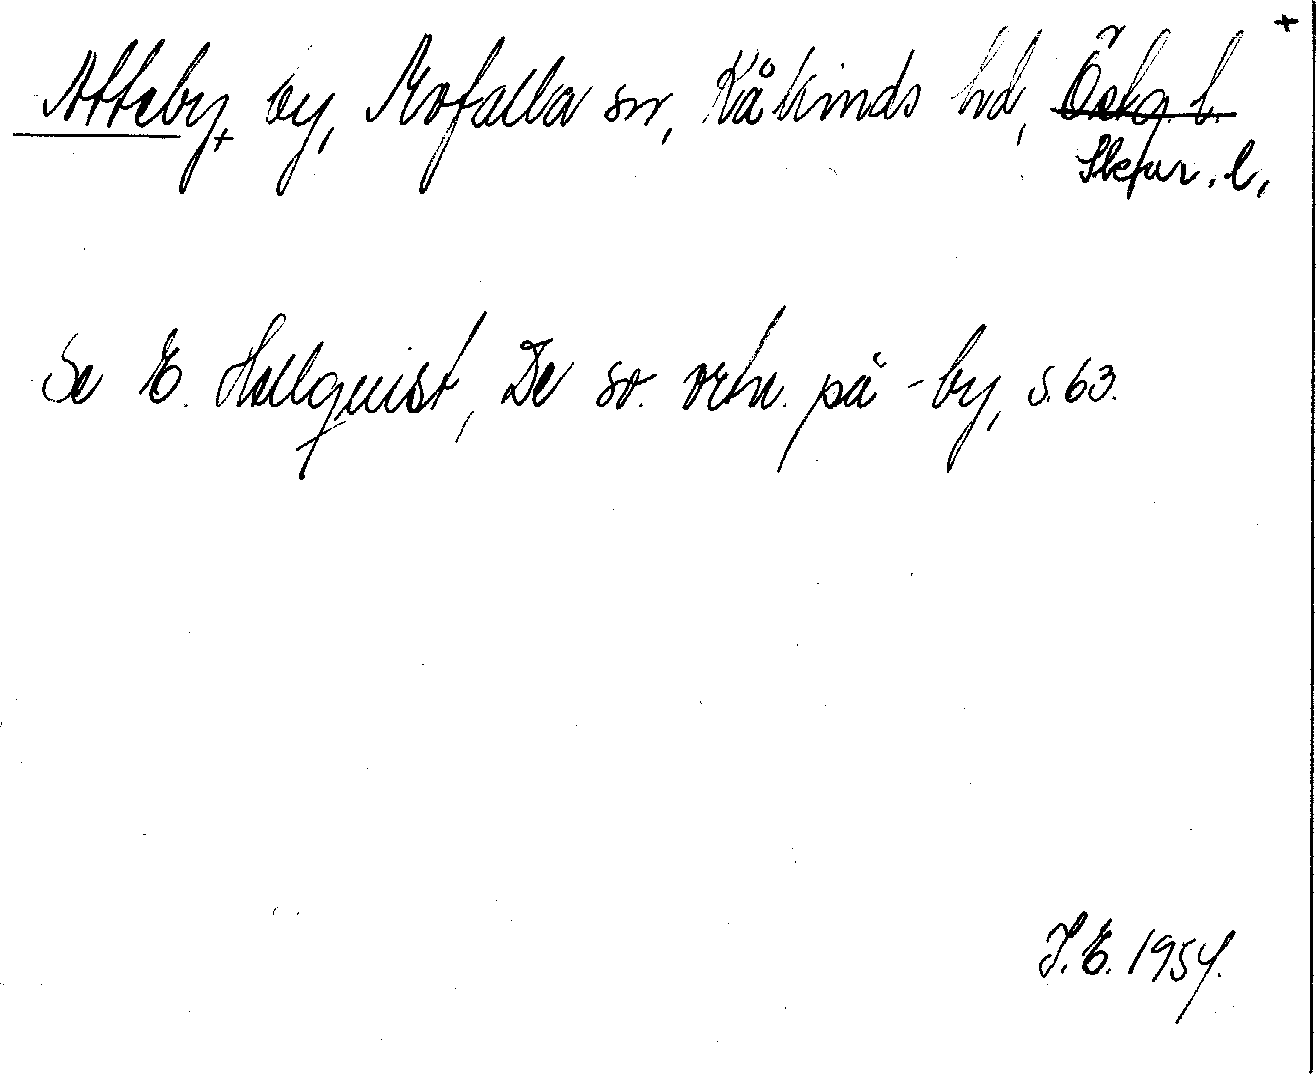 +
Atteby, by, Mofalla sn, Kåkinds hd, Östg. l.
Skar. l.
Se E. Hellquist, De sv. ortn. på -by, s. 63.
E. 1954.